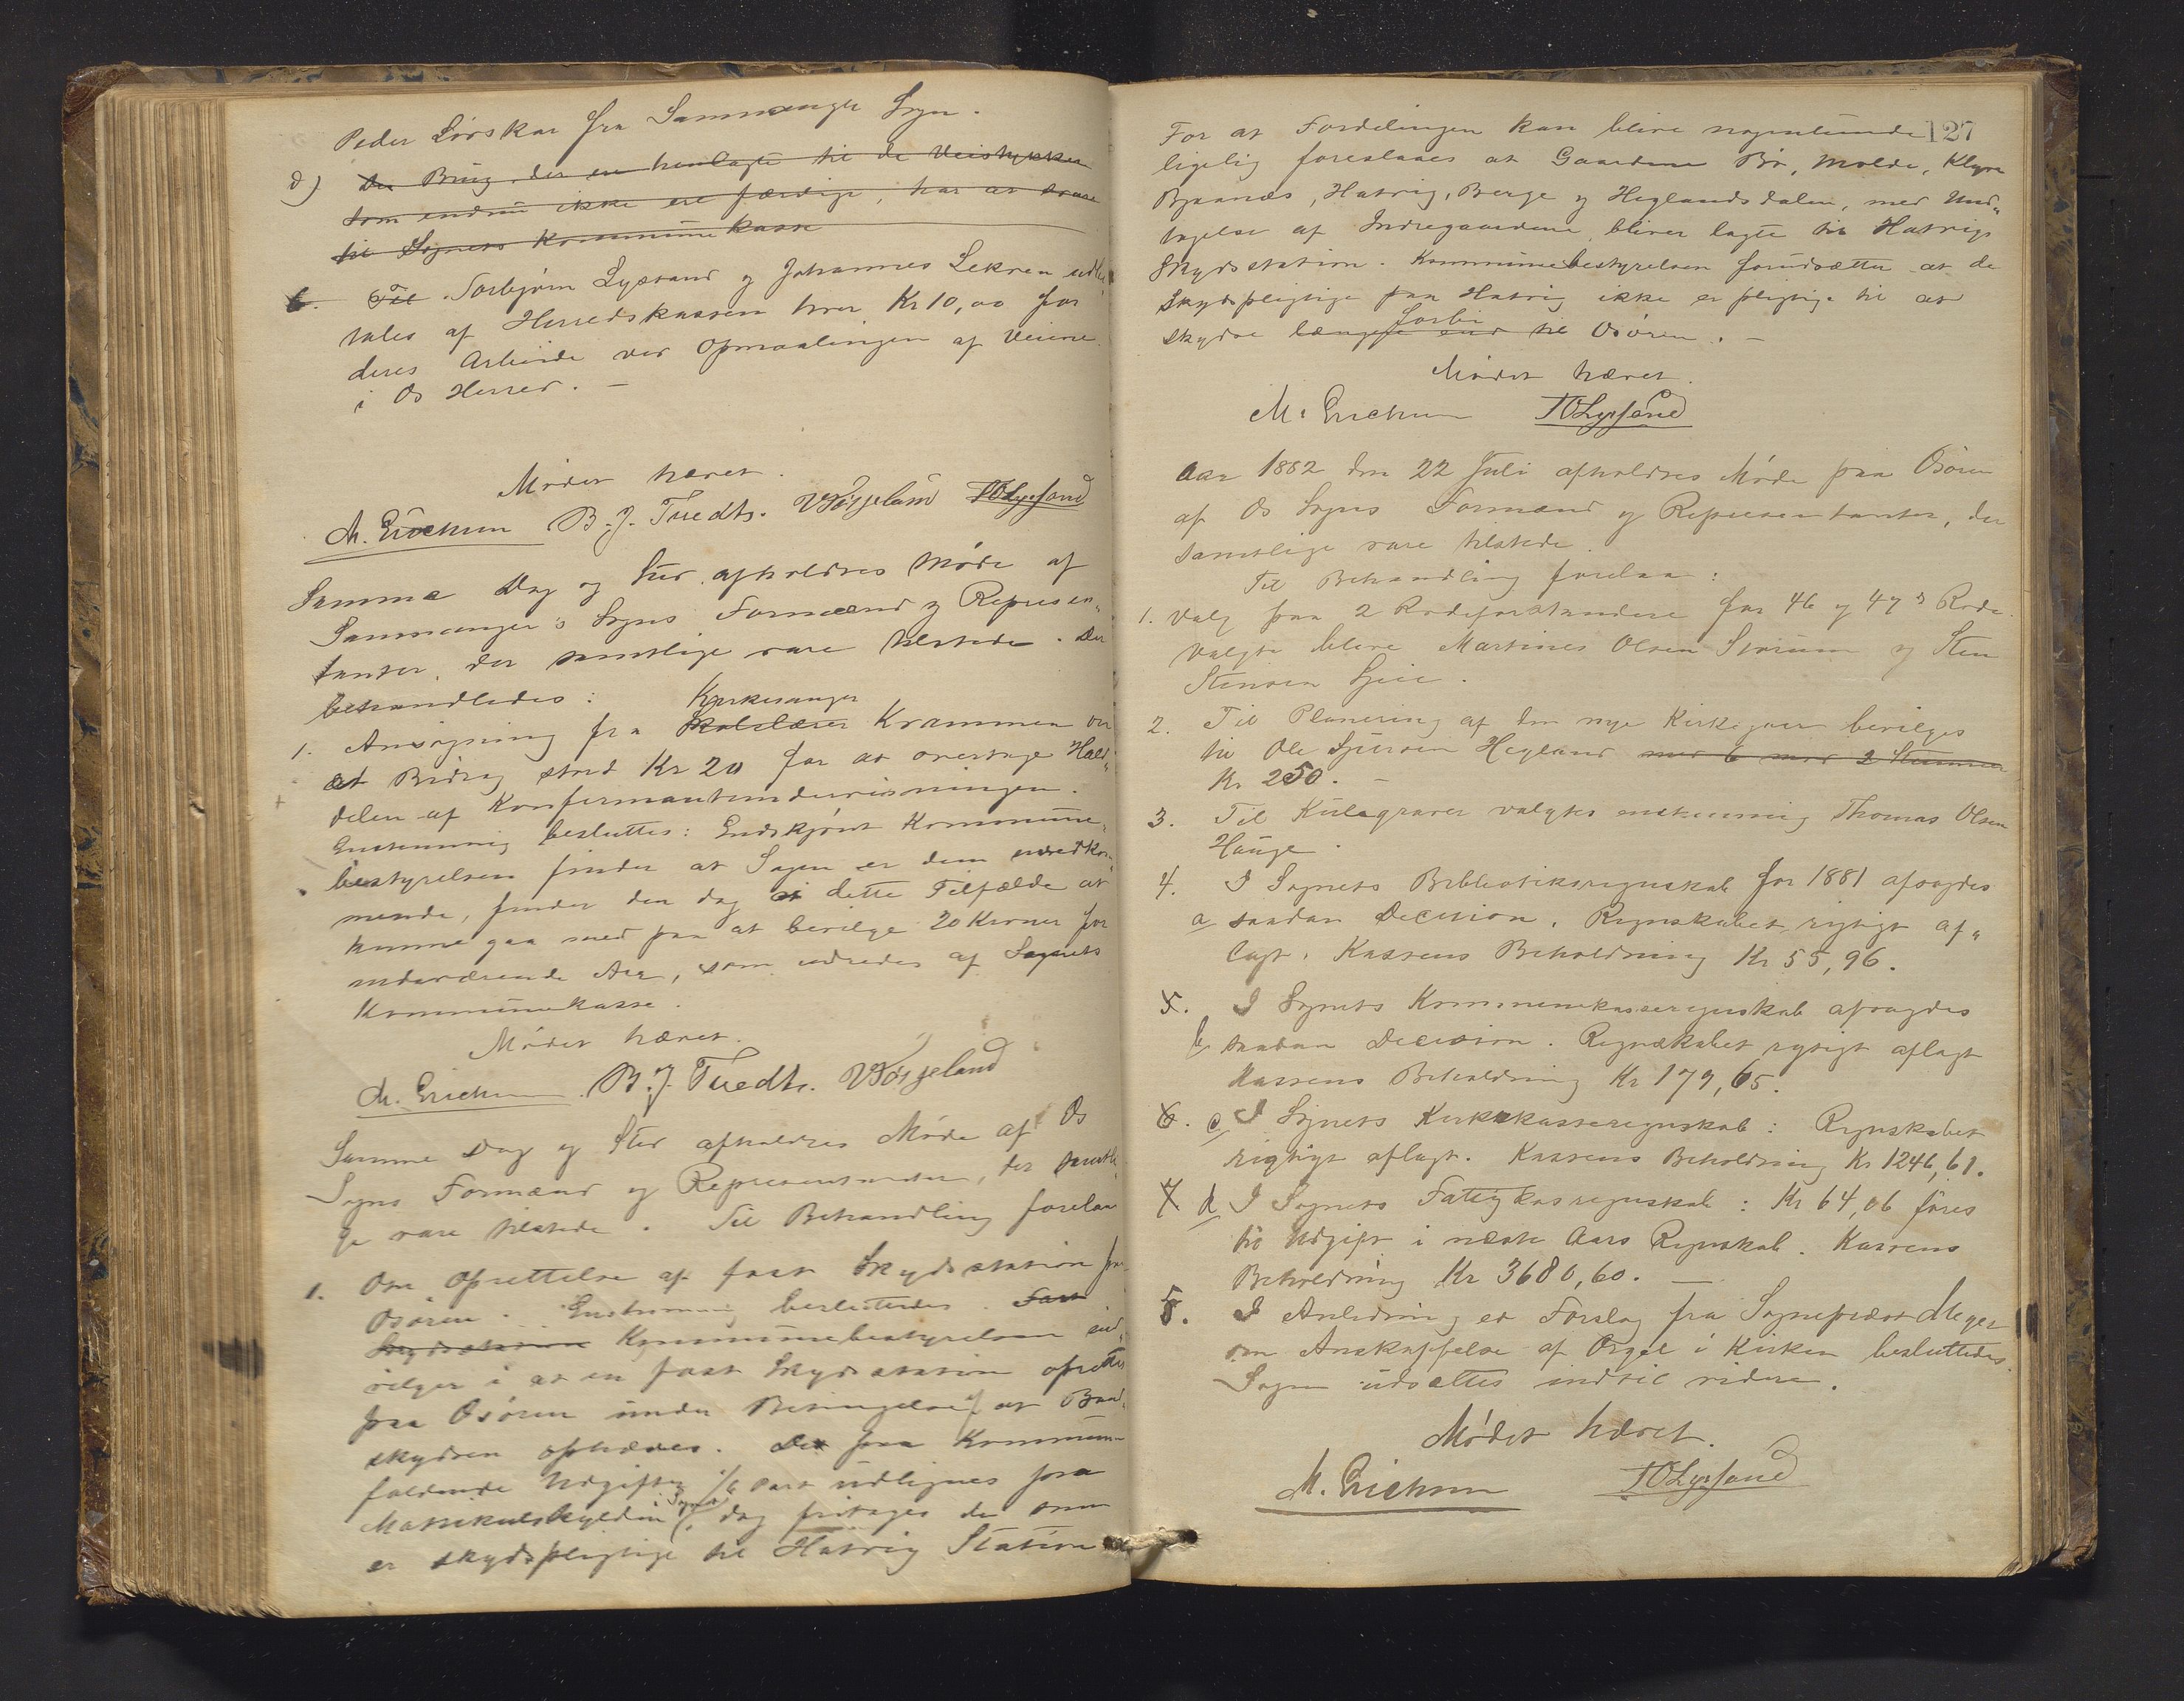 Peder Løvskar fra Sammanger Sogn.
d) De Brug, der er henlagte til de Veistykker
som endnu ikke ere færdige, har at svare
til Sognets Kommunekasse
6. Til Torbjørn Lysand og Johannes Lekven udbe„
tales af Herredskassen hver Kr 10,00 for
deres Arbeide ved Opmaalingen af Veiene
i Os Herred. –
Mødet hævet.
M. Erichsen B. J. Tvedt. Vørgeland TOLysand
Samme Dag og Sted afholdtes Møde af
Sammanger's Sogns Formænd og Represen„
tanter, der samtlige vare tilstede. Der
behandledes:
1. Ansøgning fra Skolelærer Kirkesanger Krammen om
et Bidrag stort Kr 20 for at overtage Hald„
delen af Konfirmantundervisningen.
Enstemmig besluttes: Endskjønt Kommune„
bestyrelsen finder at Sagen er dem uvedkom„
mende, finder den dog i dette Tilfælde at
kunne gaa med paa at bevilge 20 Kroner for
indeværende Aar, som udredes af Sognets
Kommunekasse.
Mødet hævet.
M. Erichsen B. J. Tvedt. Vørgeland
Samme Dag og Sted afholdtes Møde af Os
Sogns Formænd og Representanter, der samtli„
ge vare tilstede. Til Behandling forelaa
1. Om Oprettelse af fast Skydsstation paa
Osøren. Enstemmig besluttedes. Fast
Skydsstation Kommunebestyrelsen ind„
vilger i at en fast Skydsstation oprettes
paa Osøren under Betingelse af at Baad„
skydsen ophæves. Det paa Kommunen
faldende Udgifter 1/4 Part udlignes paa
Matrikulskylden i Sognet, dog fritages de som
er skydspligtige til Hatvig Station
127
For at Fordelingen kan blive nogenlunde
ligelig foreslaaes at Gaardene Bø, Molde, Klyve
Bjaanæs, Hatvig, Berge og Heglandsdalen, med Und„
tagelse af Indregaardene bliver lagte til Hatvigs
Skydsstation. Kommunebestyrelsen forudsætter at de
Skydspligtige paa Hatvig ikke er pligtige til at
skydse længer end til forbi Osøren. –
Mødet hævet.
M. Erichsen TOLysand
Aar 1882 den 22 Juli afholdtes Møde paa Osøren
af Os Sogns Formænd og Representanter, der
samtlige vare tilstede.
Til Behandling forelaa:
1. Valg paa 2 Rodeforstandere for 46 og 47s Rode.
Valgte bleve Martines Olsen Sørum og Sten
Stensen Lyse.
2. Til Planering af den nye Kirkegaar bevilges
til Ole Sjursen Hegland med 6 mod 2 Stemmer
Kr 250. –
3. Til Kulegraver valgtes enstemmig Thomas Olsen
Hauge.
4. I Sognets Biblioteksregnskab for 1881 afsagdes
a saadan Decision. Regnskabet rigtigt af„
lagt. Kassens Beholdning Kr 55,96.
5. I Sognets Kommunekasseregnskab afsagdes
b saadan Decision. Regnskabet rigtigt aflagt
Kassens Beholdning Kr 179,65.
6. c I Sognets Kirkekasseregnskab: Regnskabet
rigtigt aflagt. Kassens Beholdning Kr 1246,61.
7 d I Sognets Fatigkasregnskab: Kr 64,06 føres
til Udgift i næste Aars Regnskab. Kassens
Beholdning Kr 3680,60. –
5. I Anledning et Forslag fra Sogneprest Meyer
om Anskaffelse af Orgel i Kirken besluttedes.
Sagen udsættes indtil videre.
Mødet hævet.
M. Erichsen TOLysand